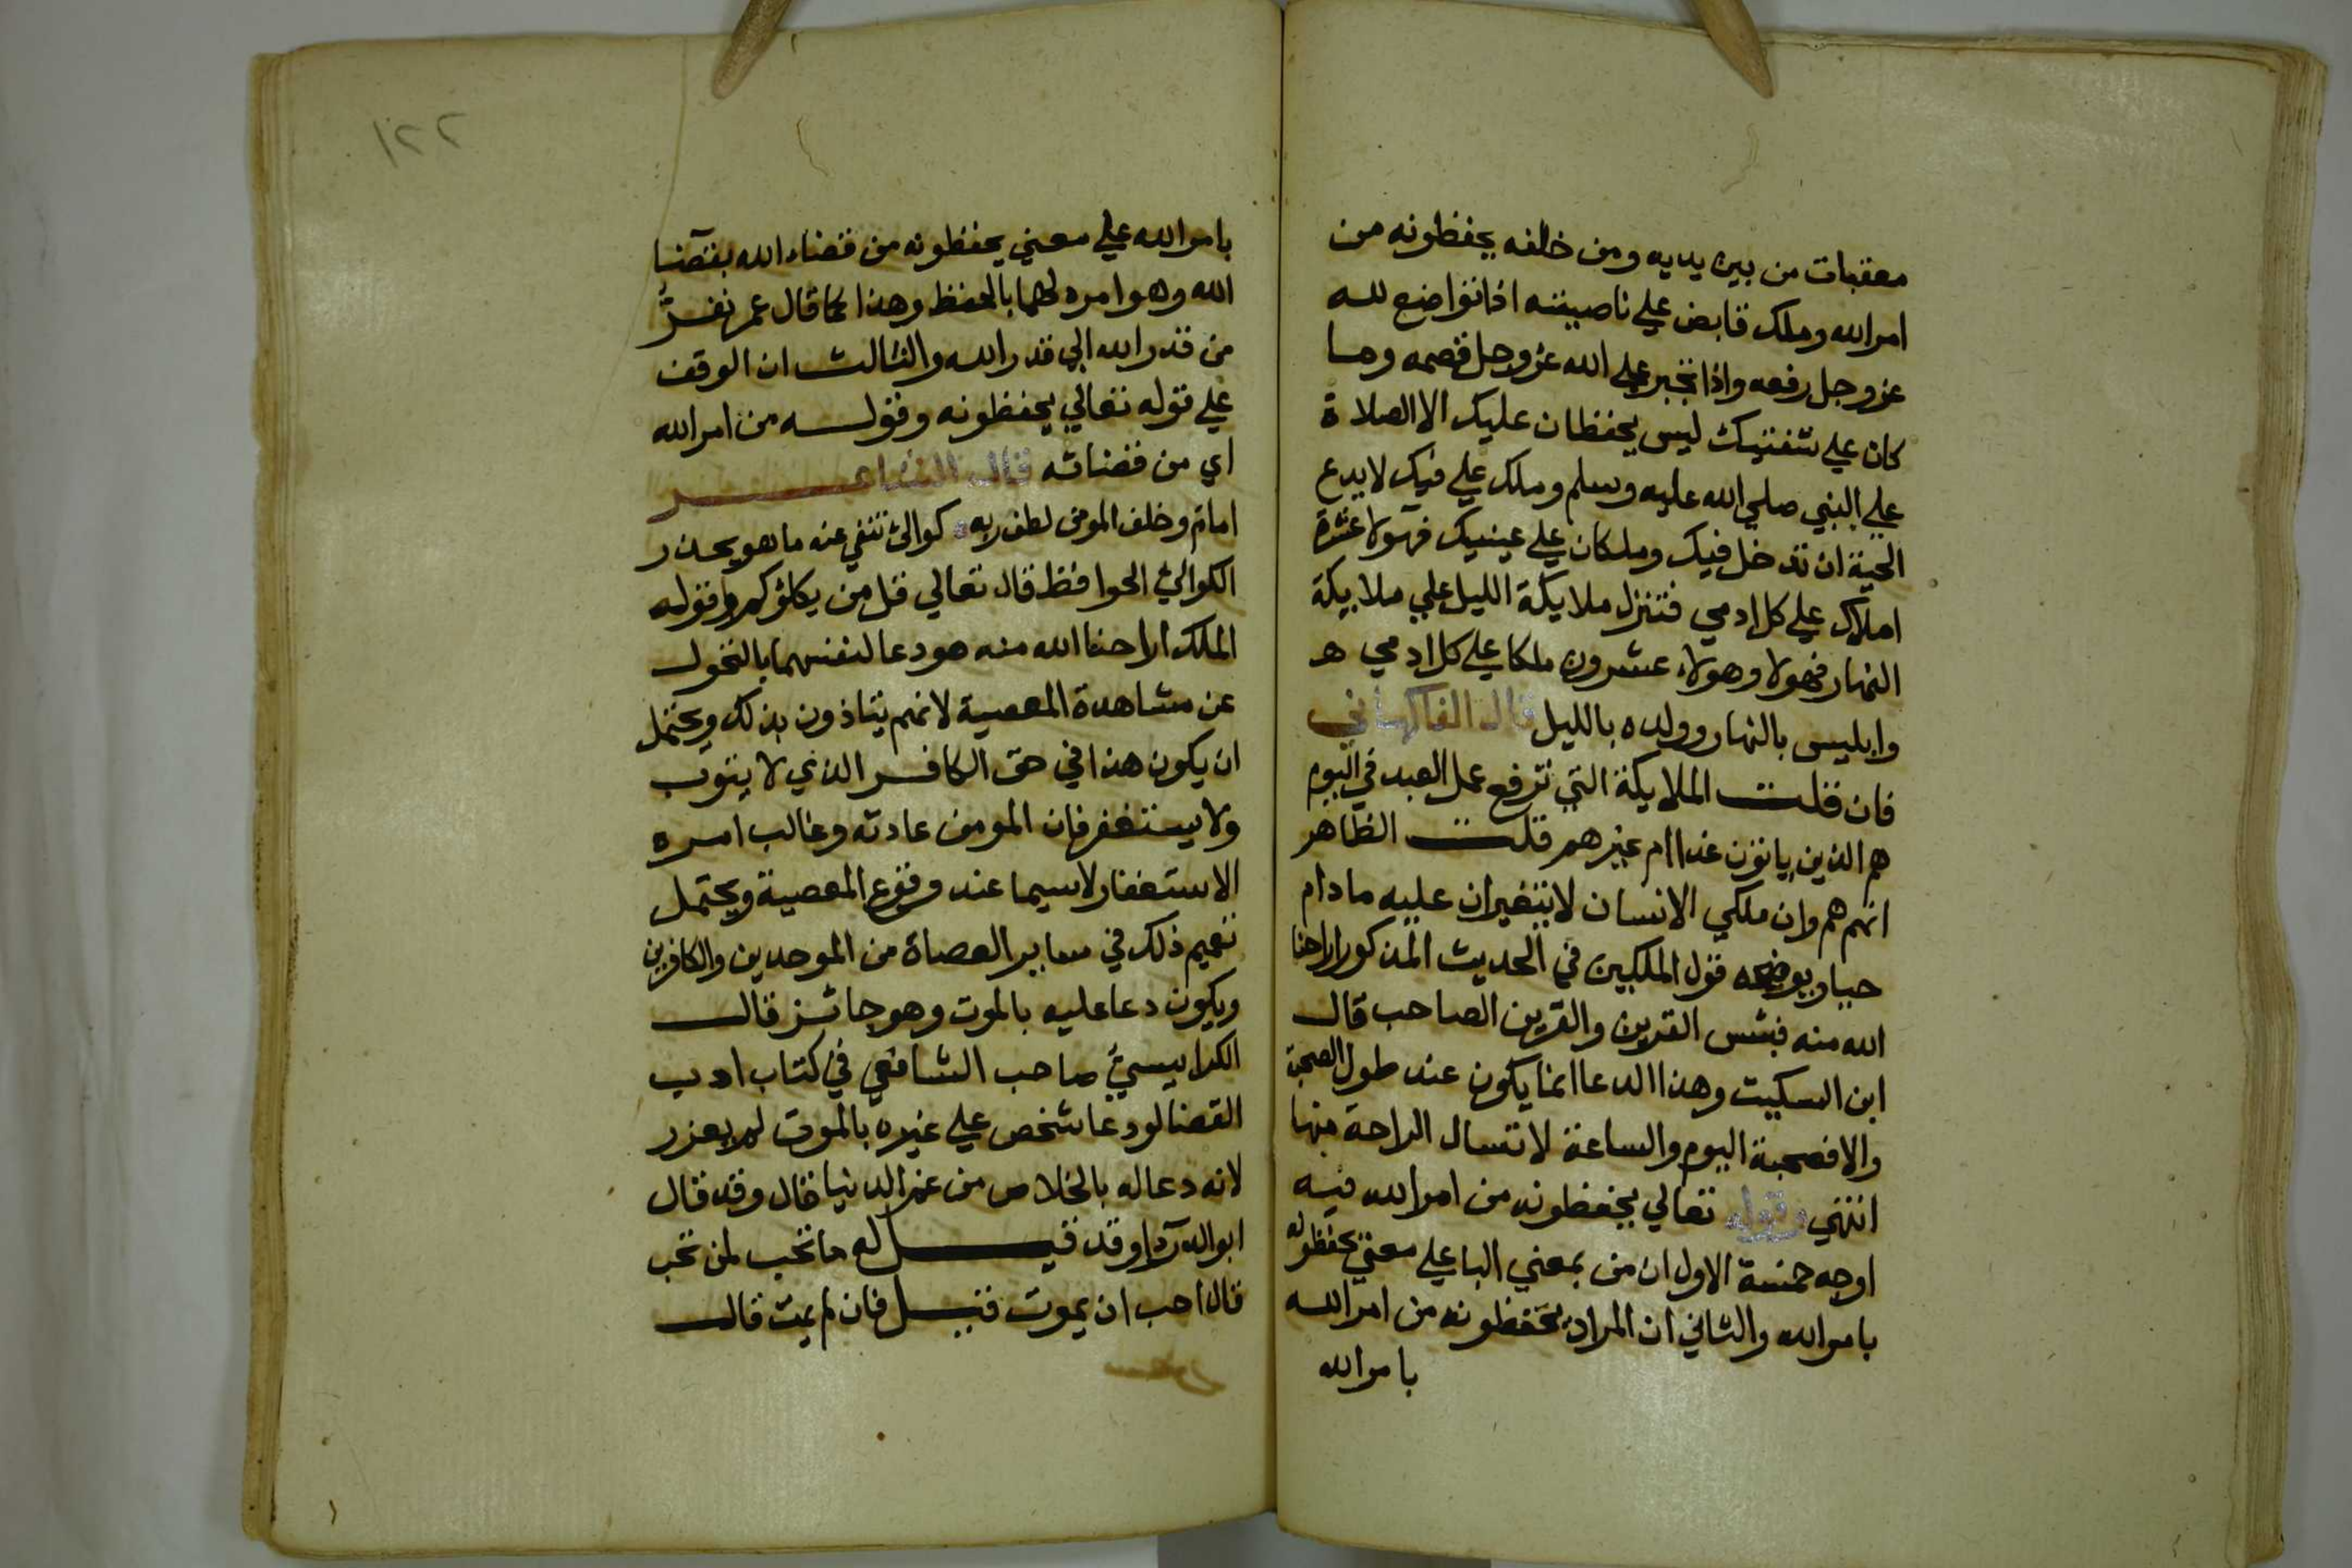 معقبات من بين يديه ومن خلفه يحفظونه من
امر الله وملك قابض علي ناصيته اذا تواضع لله
عز وجل رفعه واذا تجبر علي الله عز وجل قصمه وملكا
كان علي شفتيك ليس يحفظان عليك الا الصلاة
علي النبي صلي الله عليه وسلم وملك علي فيك لا يدع
الحية ان تدخل فيك وملكان علي عينيك فهولا عشرة
املاك علي كل ادمي فتنزل ملايكة الليل علي ملايكة
النهار فهولا وهولاء عشرون ملكا علي كل ادمي ه
وابليس بالنهار وولده بالليل قال الفاكهاني
فان قلت الملايكة التي ترفع عمل العبد في اليوم
هم الذين ياتون غدا ام غيرهم قلت الظاهر
انهم هم وان ملكي الانسان لا يتغيران عليه مادام
حيا ويوضحه قول الملكين في الحديث المذكور اراحنا
الله منه فبئس القرين والقرين الصاحب قال
ابن السكيت وهذا الدعا انما يكون عند طول الصحبة
والا فصحبة اليوم والساعة لا تسال الراحة منها
انتهي وقوله تعالي يحفظونه من امر الله فيه
اوجه خمسة الاول ان من بمعني البا علي معني يحفظونه
بامر الله والثاني ان المراد يحفظونه من امر الله
بامر الله
٢٢١
بامر الله علي معني يحفظونه من قضاء الله بقضا
الله وهو امره لهما بالحفظ وهذا كما قال عمر نفر
من قدر الله الي قدر الله والثالث ان الوقف
علي قوله تعالي يحفظونه وقوله من امر الله
اي من قضائه قال الشاعر
امام وخلف المومن لطف ربه كوالئ تنفي عنه ما هو يحذر
الكوالئ الحوافظ قال تعالي قل من يكلؤكم وقوله
الملك اراحنا الله منه هو دعا لنفسهما بالتحول
عن مشاهدة المعصية لانهم يتاذون بذلك ويحتمل
ان يكون هذا في حق الكافر الذي لا يتوب
ولا يستغفر فان المومن عادته وغالب امره
الاستغفار لا سيما عند وقوع المعصية ويحتمل
تعميم ذلك في ساير العصاة من الموحدين والكافرين
ويكون دعا عليه بالموت وهو جائز قال
الكرابيسي صاحب الشافعي في كتاب ادب
القضا لو دعا شخص علي غيره بالموت لم يعزر
لانه دعا له بالخلاص من غم الدنيا قال وقد قال
ابو الدردا وقد قيل له ما تحب لمن تحب
قال احب ان يموت قيل فان لم يمت قال